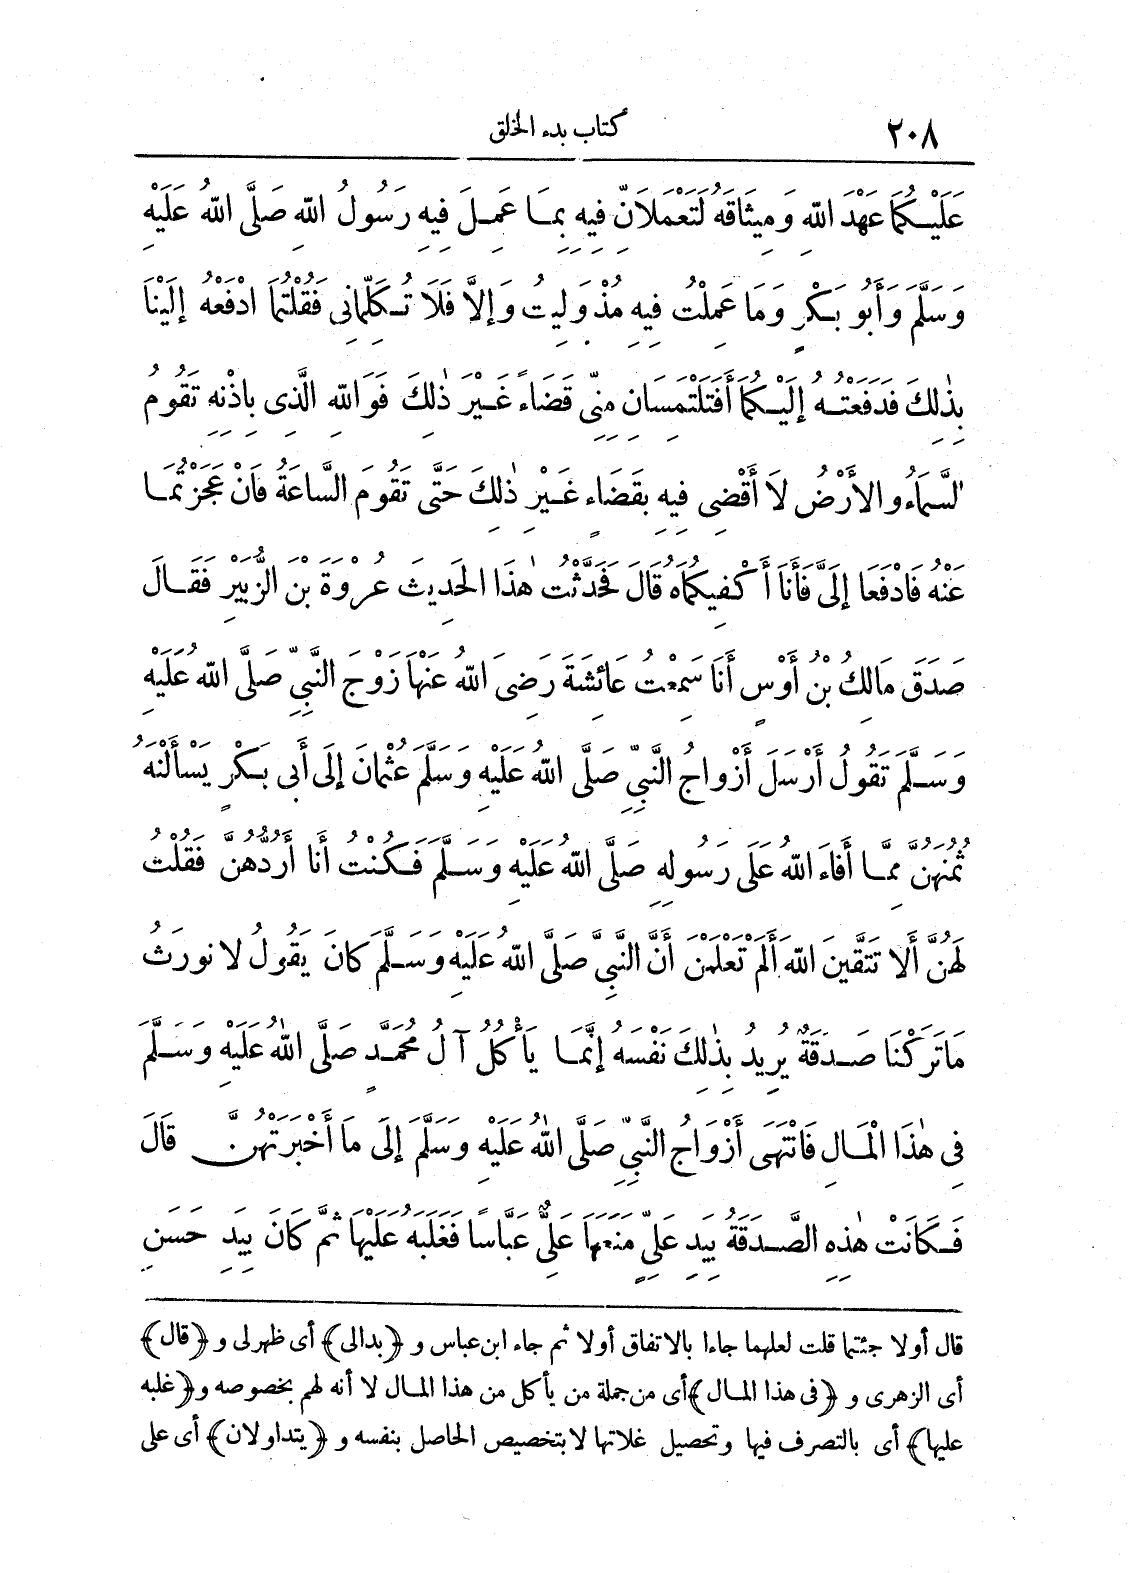 ٢٠٨ كتاب بدء الخلق
عَلَيْكُمَا عَهْدَ اللهِ وَمِيثَاقَهُ لَتَعْمَلَانِّ فِيهِ بِمَا عَمِلَ فِيهِ رَسُولُ اللهِ صَلَّى اللهُ عَلَيْهِ
وَسَلَّمَ وَأَبُو بَكْرٍ وَمَا عَمِلْتُ فِيهِ مُذْ وَلِيتُ وَإِلَّا فَلَا تُكَلِّمَانِي فَقُلْتُمَا ادْفَعْهُ إِلَيْنَا
بِذٰلِكَ فَدَفَعْتُهُ إِلَيْكُمَا أَفَتَلْتَمِسَانِ مِنِّي قَضَاءً غَيْرَ ذٰلِكَ فَوَاللهِ الَّذِي بِإِذْنِهِ تَقُومُ
السَّمَاءُ وَالأَرْضُ لَا أَقْضِي فِيهِ بِقَضَاءٍ غَيْرِ ذٰلِكَ حَتَّى تَقُومَ السَّاعَةُ فَإِنْ عَجَزْتُمَا
عَنْهُ فَادْفَعَا إِلَيَّ فَأَنَا أَكْفِيكُمَاهُ قَالَ فَحَدَّثْتُ هٰذَا الحَدِيثَ عُرْوَةَ بْنَ الزُّبَيْرِ فَقَالَ
صَدَقَ مَالِكُ بْنُ أَوْسٍ أَنَا سَمِعْتُ عَائِشَةَ رَضِيَ اللهُ عَنْهَا زَوْجَ النَّبِيِّ صَلَّى اللهُ عَلَيْهِ
وَسَلَّمَ تَقُولُ أَرْسَلَ أَزْوَاجُ النَّبِيِّ صَلَّى اللهُ عَلَيْهِ وَسَلَّمَ عُثْمَانَ إِلَى أَبِي بَكْرٍ يَسْأَلْنَهُ
ثُمُنَهُنَّ مِمَّا أَفَاءَ اللهُ عَلَى رَسُولِهِ صَلَّى اللهُ عَلَيْهِ وَسَلَّمَ فَكُنْتُ أَنَا أَرُدُّهُنَّ فَقُلْتُ
لَهُنَّ أَلَا تَتَّقِينَ اللهَ أَلَمْ تَعْلَمْنَ أَنَّ النَّبِيَّ صَلَّى اللهُ عَلَيْهِ وَسَلَّمَ كَانَ يَقُولُ لَا نُورَثُ
مَا تَرَكْنَا صَدَقَةٌ يُرِيدُ بِذٰلِكَ نَفْسَهُ إِنَّمَا يَأْكُلُ آلُ مُحَمَّدٍ صَلَّى اللهُ عَلَيْهِ وَسَلَّمَ
فِي هٰذَا الْمَالِ فَانْتَهَى أَزْوَاجُ النَّبِيِّ صَلَّى اللهُ عَلَيْهِ وَسَلَّمَ إِلَى مَا أَخْبَرَتْهُنَّ قَالَ
فَكَانَتْ هٰذِهِ الصَّدَقَةُ بِيَدِ عَلِيٍّ مَنَعَهَا عَلِيٌّ عَبَّاسًا فَغَلَبَهُ عَلَيْهَا ثُمَّ كَانَ بِيَدِ حَسَنِ
قال أولا جئتما قلت لعلهما جاءا بالاتفاق أولا ثم جاء ابن عباس و ﴿بدالى﴾ أى ظهر لى و ﴿قال﴾
أى الزهرى و ﴿فى هذا المال﴾ أى من جملة من يأكل من هذا المال لا أنه لهم بخصوصه و ﴿غلبه
عليها﴾ أى بالتصرف فيها وتحصيل غلاتها لا بتخصيص الحاصل بنفسه و ﴿يتداولان﴾ أى على